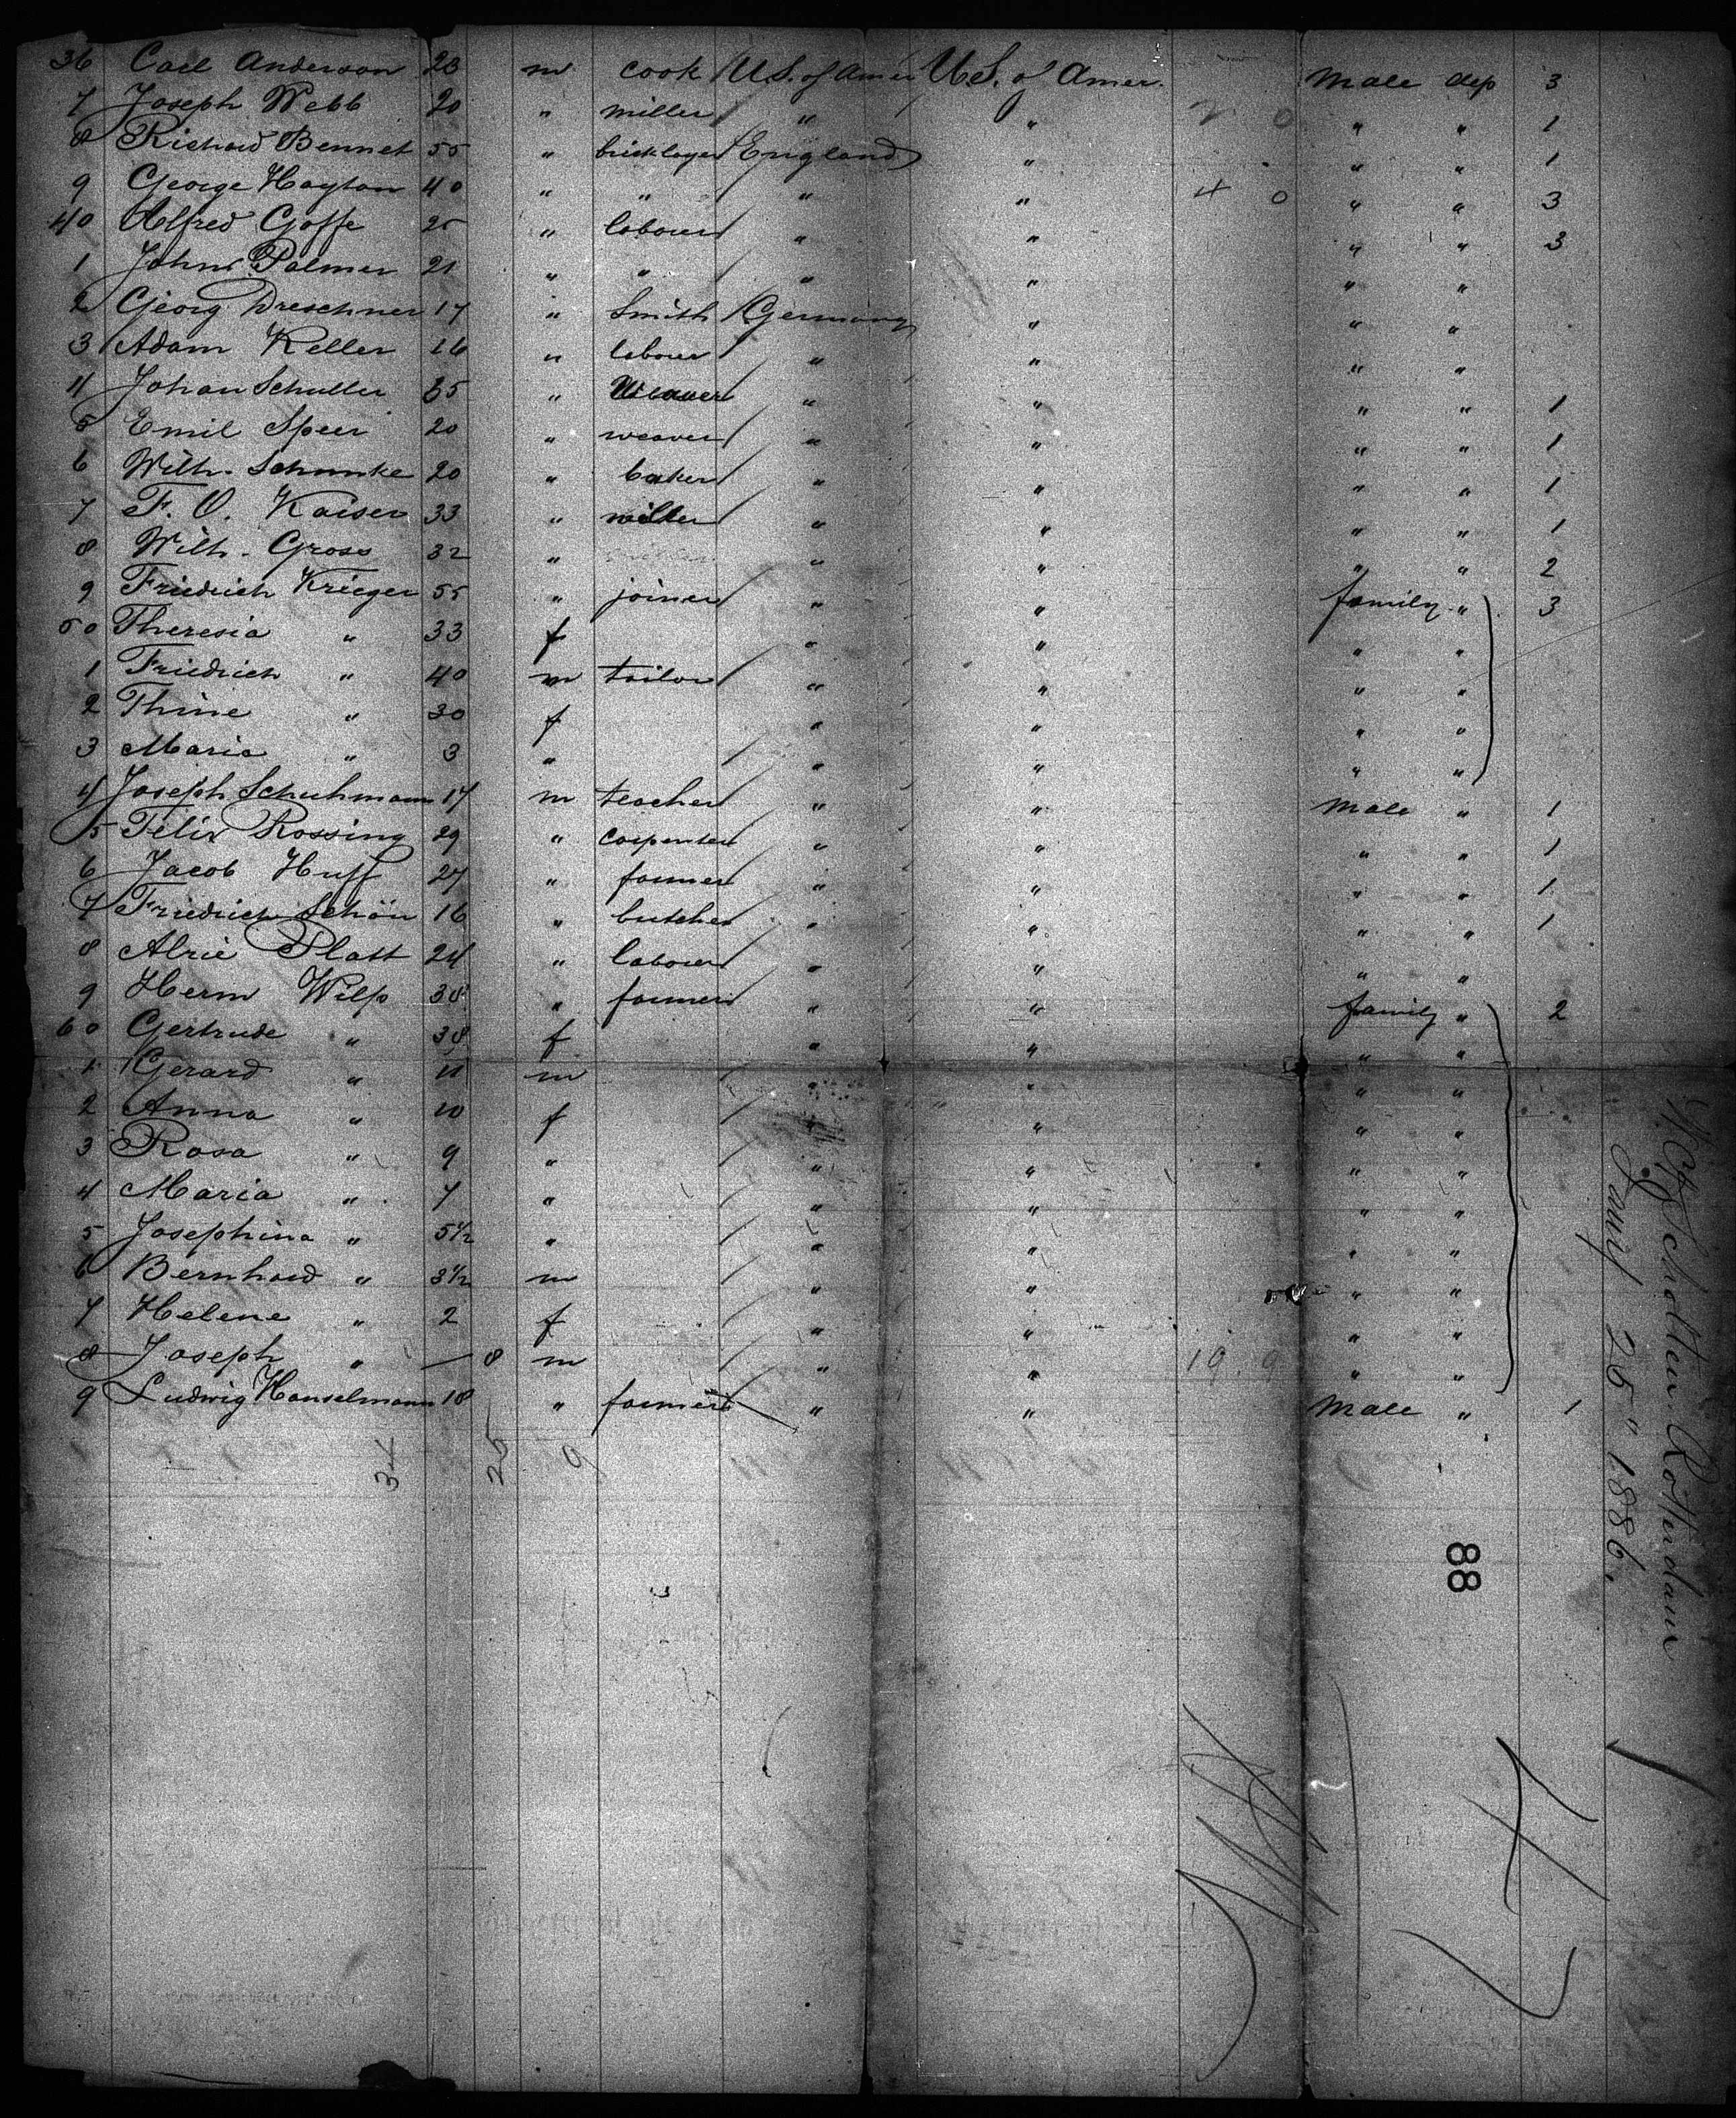 36 Carl Anderson 23 m cook U.S. of Amer U.S. of Amer. Male dep 3
7 Joseph Webb 20 " miller " " 2 0 " " 1
8 Richard Bennet 55 " bricklayer England " " " 1
9 George Hayton 40 " " " " 4 0 " " 3
40 Alfred Goffe 25 " labourer " " " " 3
1 John Palmer 21 " " " " " "
2 Georg Dreschner 17 " Smith Germany " " "
3 Adam Keller 16 " labourer " " " "
4 Johan Schuller 35 " Weaver " " " " 1
5 Emil Speer 20 " weaver " " " " 1
6 Wilh. Schunke 20 " baker " " " " 1
7 F. O. Kaiser 33 " miller " " " " 1
8 Wilh. Gross 32 " " " " " 2
9 Friedrich Krieger 55 " joiner " " family " 3
50 Theresia " 33 f " " " "
1 Friedrich " 40 m tailor " " " "
2 Thine " 30 f " " " "
3 Maria " 3 " " " " "
4 Joseph Schuhmann 17 m teacher " " Male " 1
5 Felix Rossing 29 " carpenter " " " " 1
6 Jacob Huff 27 " farmer " " " " 1
7 Friedrich Schön 16 " butcher " " " " 1
8 Platt 24 " labourer " " " "
9 Herm Wilp 38 " farmer " " family " 2
60 Gertrude " 38 f " " " "
1 Gerard " 11 m " " " "
2 Anna " 10 f " " " "
3 Rosa " 9 " " " " "
4 Maria " 7 " " " " "
5 Josephina " 5½ " " " " "
6 Bernhard " 3½ m " " " "
7 Helene " 2 f " " " "
8 Joseph " — 8 m " " 19 9 " "
9 Ludwig Hanselmann 18 " farmer " " Male " 1
34 25 9
Schotten Rotterdam
Jany 25" 1886.
88